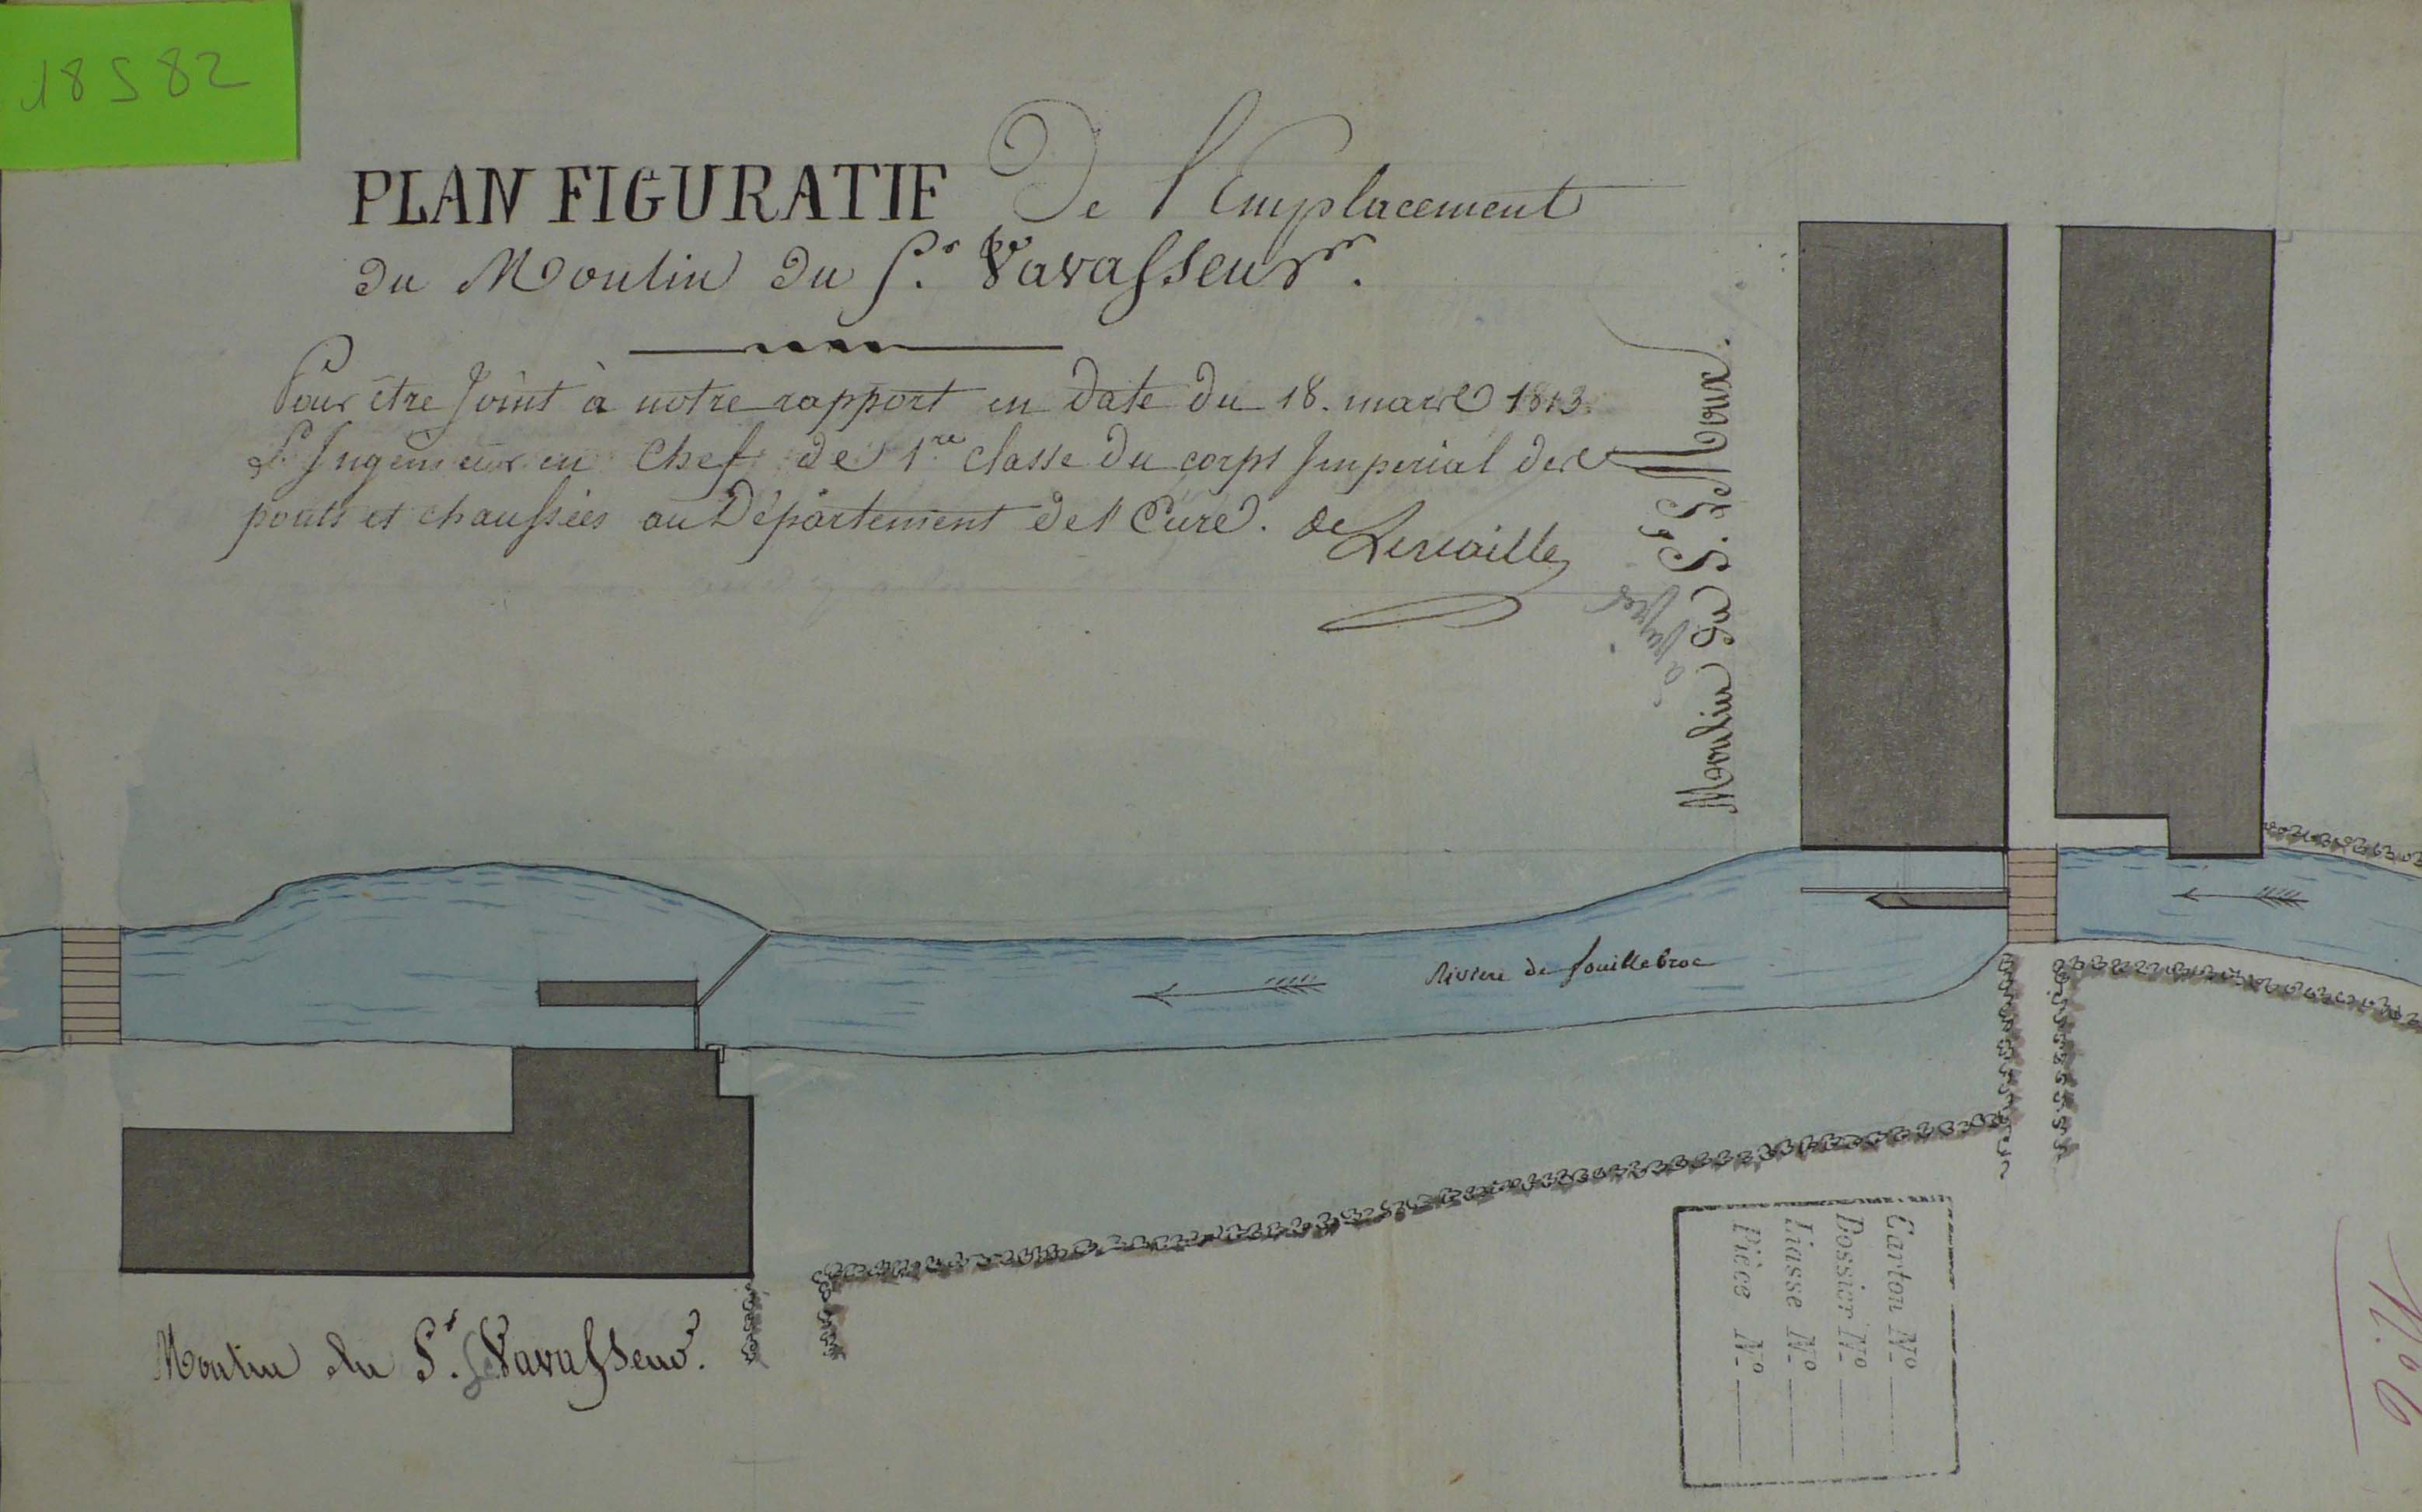 18S82
PLAN FIGURATIF De l'Emplacement
du Moulin du S.r Vavasseur.
Pour être Joint à notre rapport en date du 18. mars 1813.
L'Ingénieur en Chef de 1re classe du corps Imperial des
ponts et chaussées au Département de l'Eure.
Moulin du S.r Le Roux.
à lyons
Riviere de fouillebroc
Moulin du S.r le Vavasseur.
Carton N.o
Dossier N.o
Liasse N.o
Pièce N.o
N.o 6